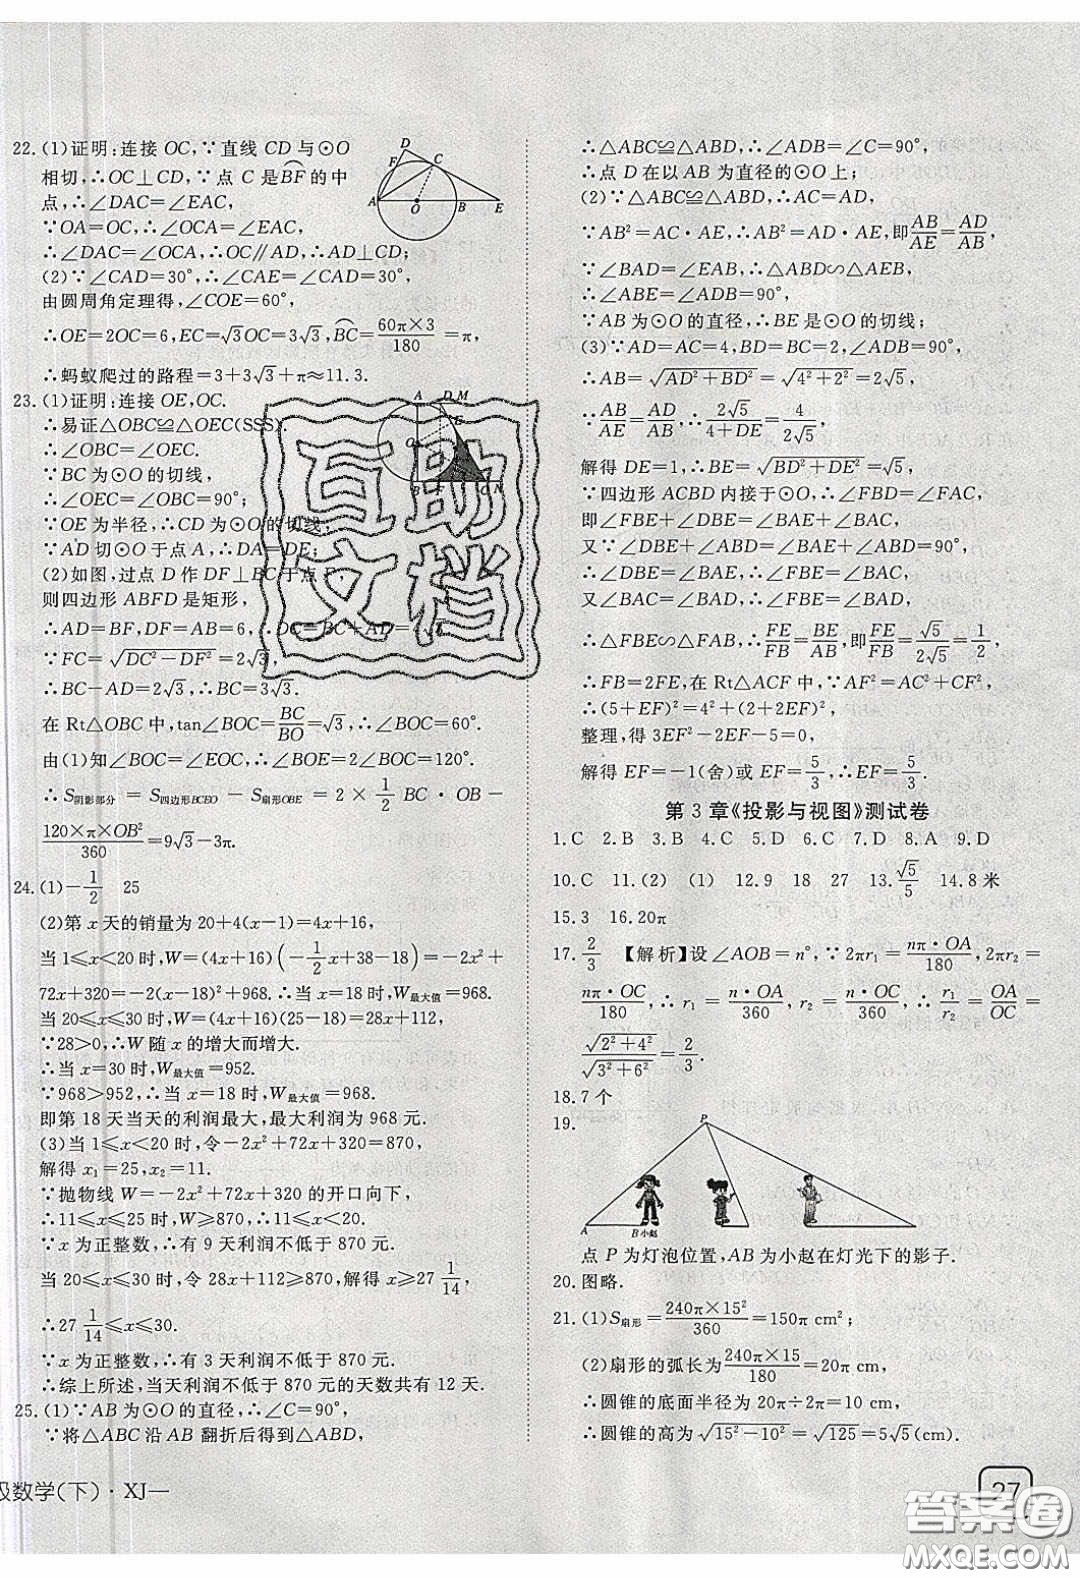 22.(1)证明:连接 OC,∵直线 CD 与⊙O
相切,∴OC⊥CD,∵点 C 是BF的中
点,∴∠DAC=∠EAC,
∵OA=OC,∴∠OCA=∠EAC,
∴∠DAC=∠OCA,∴OC∥AD,∴AD⊥CD;
(2)∵∠CAD=30°,∴∠CAE=∠CAD=30°,
由圆周角定理得,∠COE=60°,
∴OE=2OC=6,EC=√3OC=3√3,BC=60π×3/180=π,
∴蚂蚁爬过的路程=3+3√3+π≈11.3.
23.(1)证明:连接 OE,OC.
∴易证△OBC≌△OEC(SSS),
∴∠OBC=∠OEC.
∵BC 为⊙O 的切线,
∴∠OEC=∠OBC=90°;
∵OE 为半径,∴CD 为⊙O 的切线,
∵AD 切⊙O 于点 A,∴DA=DE;
(2)如图,过点 D 作 DF⊥BC 于点 F,
则四边形 ABFD 是矩形,
∴AD=BF,DF=AB=6,∴DC=BC+AD=4√3.
∵FC=√(DC²−DF²)=2√3,
∴BC−AD=2√3,∴BC=3√3.
在 Rt△OBC 中,tan∠BOC=BC/BO=√3,∴∠BOC=60°.
由(1)知∠BOC=∠EOC,∴∠BOE=2∠BOC=120°.
∴S阴影部分=S四边形BCEO−S扇形OBE=2×1/2 BC·OB−
120×π×OB²/360=9√3−3π.
24.(1)−1/2 25
(2)第 x 天的销量为 20+4(x−1)=4x+16,
当 1≤x<20 时,W=(4x+16)(−1/2x+38−18)=−2x²+
72x+320=−2(x−18)²+968.∴当 x=18 时,W最大值=968.
当 20≤x≤30 时,W=(4x+16)(25−18)=28x+112,
∵28>0,∴W 随 x 的增大而增大.
∴当 x=30 时,W最大值=952.
∵968>952,∴当 x=18 时,W最大值=968.
即第 18 天当天的利润最大,最大利润为 968 元.
(3)当 1≤x<20 时,令−2x²+72x+320=870,
解得 x₁=25,x₂=11.
∵抛物线 W=−2x²+72x+320 的开口向下,
∴11≤x≤25 时,W≥870,∴11≤x<20.
∵x 为正整数,∴有 9 天利润不低于 870 元.
当 20≤x≤30 时,令 28x+112≥870,解得 x≥27 1/14,
∴27 1/14≤x≤30.
∵x 为正整数,∴有 3 天利润不低于 870 元.
∴综上所述,当天利润不低于 870 元的天数共有 12 天.
25.(1)∵AB 为⊙O 的直径,∴∠C=90°,
∵将△ABC 沿 AB 翻折后得到△ABD,
∴△ABC≌△ABD,∴∠ADB=∠C=90°,
∴点 D 在以 AB 为直径的⊙O 上;
(2)∵△ABC≌△ABD,∴AC=AD,
∵AB²=AC·AE,∴AB²=AD·AE,即AB/AE=AD/AB,
∵∠BAD=∠EAB,∴△ABD∽△AEB,
∴∠ABE=∠ADB=90°,
∵AB 为⊙O 的直径,∴BE 是⊙O 的切线;
(3)∵AD=AC=4,BD=BC=2,∠ADB=90°,
∴AB=√(AD²+BD²)=√(4²+2²)=2√5,
∵AB/AE=AD/AB,∴2√5/(4+DE)=4/(2√5),
解得 DE=1,∴BE=√(BD²+DE²)=√5,
∵四边形 ACBD 内接于⊙O,∴∠FBD=∠FAC,
即∠FBE+∠DBE=∠BAE+∠BAC,
又∵∠DBE+∠ABD=∠BAE+∠ABD=90°,
∴∠DBE=∠BAE,∴∠FBE=∠BAC,
又∠BAC=∠BAD,∴∠FBE=∠BAD,
∴△FBE∽△FAB,∴FE/FB=BE/AB,即FE/FB=√5/(2√5)=1/2,
∴FB=2FE,在 Rt△ACF 中,∵AF²=AC²+CF²,
∴(5+EF)²=4²+(2+2EF)²,
整理,得 3EF²−2EF−5=0,
解得 EF=−1(舍)或 EF=5/3,∴EF=5/3.
第 3 章《投影与视图》测试卷
1.C 2.B 3.B 4.C 5.D 6.C 7.D 8.A 9.D
10.C 11.(2) (1) 12.9 18 27 13.√5/5 14.8 米
15.3 16.20π
17.2/3 【解析】设∠AOB=n°,∵2πr₁=nπ·OA/180,2πr₂=
nπ·OC/180,∴r₁=n·OA/360,r₂=n·OC/360,∴r₁/r₂=OA/OC=
√(2²+4²)/√(3²+6²)=2/3.
18.7 个
19.
P
A B小赵
点 P 为灯泡位置,AB 为小赵在灯光下的影子.
20.图略.
21.(1)S扇形=240π×15²/360=150π cm²;
(2)扇形的弧长为240π×15/180=20π cm,
∴圆锥的底面半径为 20π÷2π=10,
∴圆锥的高为√(15²−10²)=√125=5√5(cm).
级数学(下)·XJ—
27
互助文档
答案圈
MXQE.COM